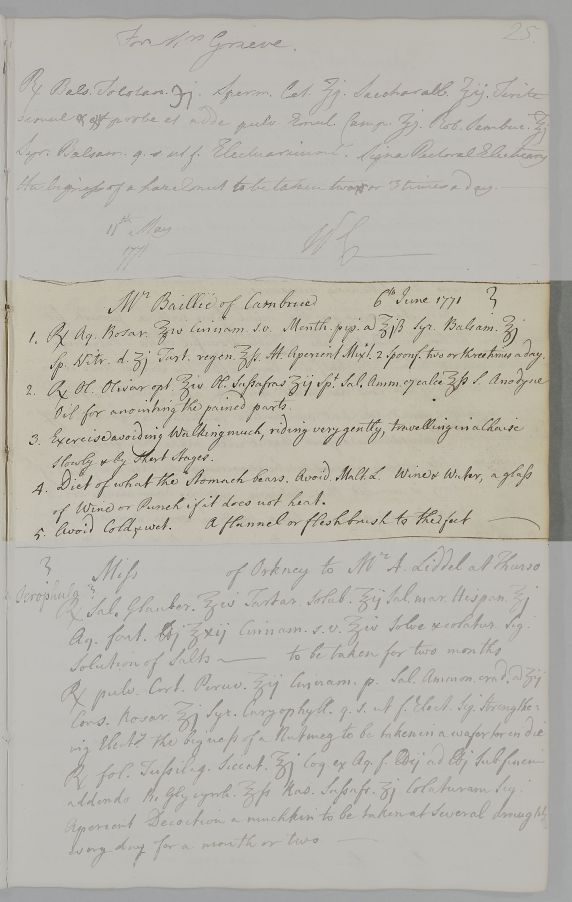 25.
For Mrs Grieve.
℞ Bals. Tolutan. ʒj. Sperm. Cet. ʒij. Sacchar alb. ʒij. Terite
simul probe et adde pulv. Gum. ʒj. Rob. Sambuc. ℥j
Syr. Balsam. q. s. ut f. Electuarium. Signa Pectoral Electuary
the bigness of a hazelnut to be taken two or 3 times a day.
11th May
1771
Mr Baillie of Cambrued 6th June 1771
1. ℞ Aq. Rosar. ℥iv Cinnam. s.v. Menth. pip. a ℥jß Syr. Balsam. ℥j
Sp. Nitr. d. ʒj Tart. regen. ʒß. M. Aperient Mixt. 2 spoonf. two or three times a day.
2. ℞ Ol. Olivar. opt. ℥iv Ol. Sassafras ʒij Spt. Sal. Amm. c calce ℥ß S. Anodyne
Oil for anointing the pained parts.
3. Exercise avoiding Walking much, riding very gently, travelling in a chaise
slowly & by short stages.
4. Diet of what the Stomach bears. Avoid Malt L. Wine & Water, a glass
of Wine or Punch if it does not heat.
5. Avoid Cold & wet. A flannel or fleshbrush to the feet
Miss of Orkney to Mr A. Liddel at Thurso
Scrophula
℞ Sal. Glauber. ℥iv Tartar. Solub. ℥ij Sal. mar. Hispan. ℥j
Aq. font. ℥xij Cinnam. s.v. ℥iv Solve & colatur. Sig.
Solution of Salts to be taken for two months
℞ pulv. Cort. Peruv. ℥ij Cinnam. p. Sal. Ammon. crud. a ʒij
Cons. Rosar. ℥j Syr. Caryophyll. q. s. ut f. Elect. Sig. Strengthe-
ning Elect. the bigness of a Nutmeg to be taken in a wafer ter in die
℞ fol. Tussilag. Siccat. ℥j Coq ex Aq. f. ℔ij ad ℔j Sub finem
addendo R. Glycyrrh. ℥ß Ras. Sassafr. ʒj Colaturam Sig.
Aperient Decoction a muchkin to be taken at several draughts
every day for a month or two